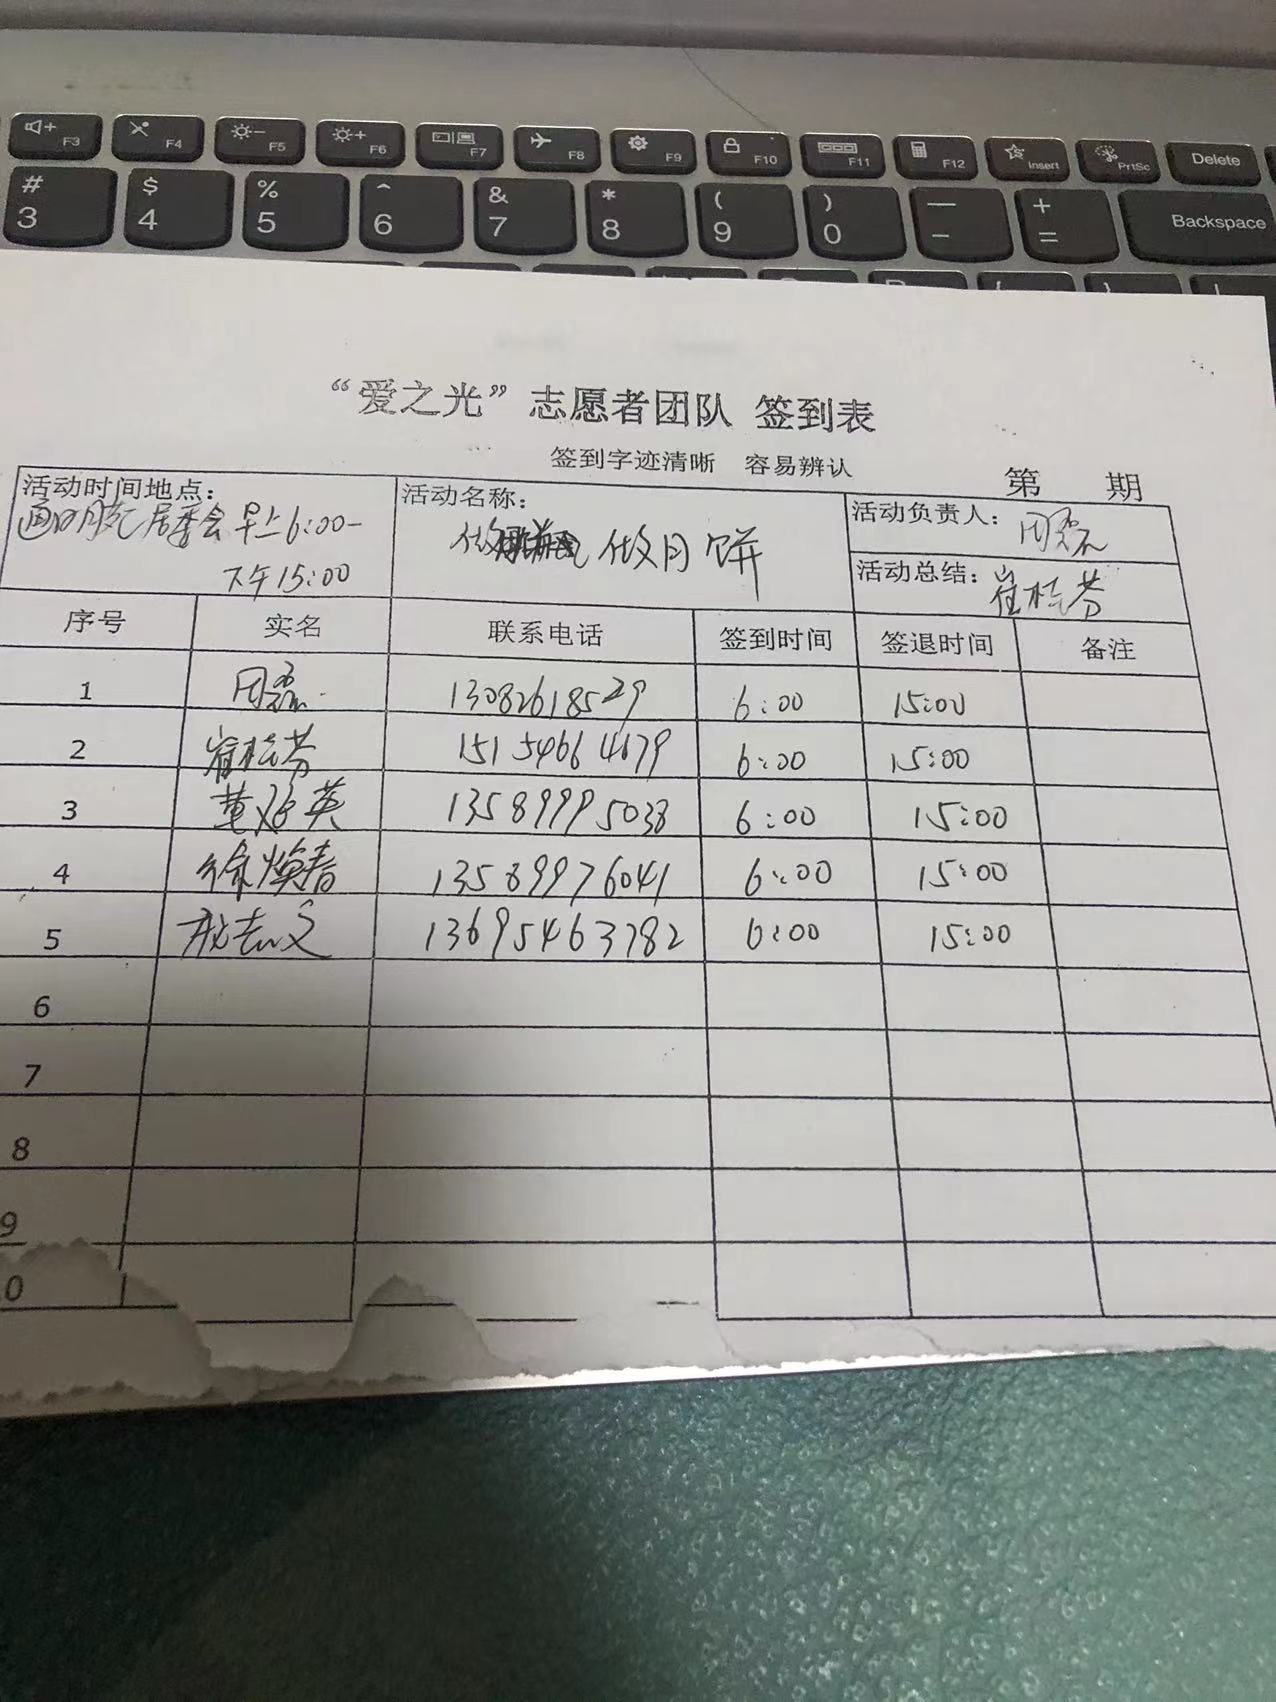 F3 F4 F5 F6 F7 F8 F9 F10 F11 F12 Insert PrtSc Delete
# $ % ^ & * ( ) — +
3 4 5 6 7 8 9 0 - = Backspace
“爱之光”志愿者团队 签到表
签到字迹清晰 容易辨认
第 期
活动时间地点: 居委会 早上6:00-
下午15:00
活动名称: 做月饼
活动负责人: 周磊
活动总结: 崔桂芬
序号 实名 联系电话 签到时间 签退时间 备注
1 周磊 13082618529 6:00 15:00
2 崔桂芬 15154664679 6:00 15:00
3 董 英 13589995038 6:00 15:00
4 徐焕春 13589976041 6:00 15:00
5 志文 13695463782 6:00 15:00
6
7
8
9
0